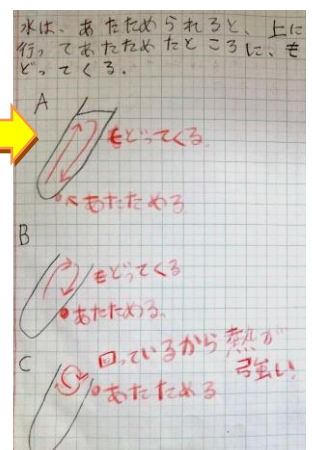 水は、あたためられると、上に
行ってあたためたところに、も
どってくる。
A
もどってくる
←あたためる
B
もどってくる
あたためる。
C
回っているから熱が
強い!
あたためる